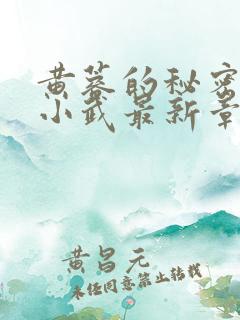 黄蓉的秘密
小武最新章
黄昌元
未经同意禁止转载